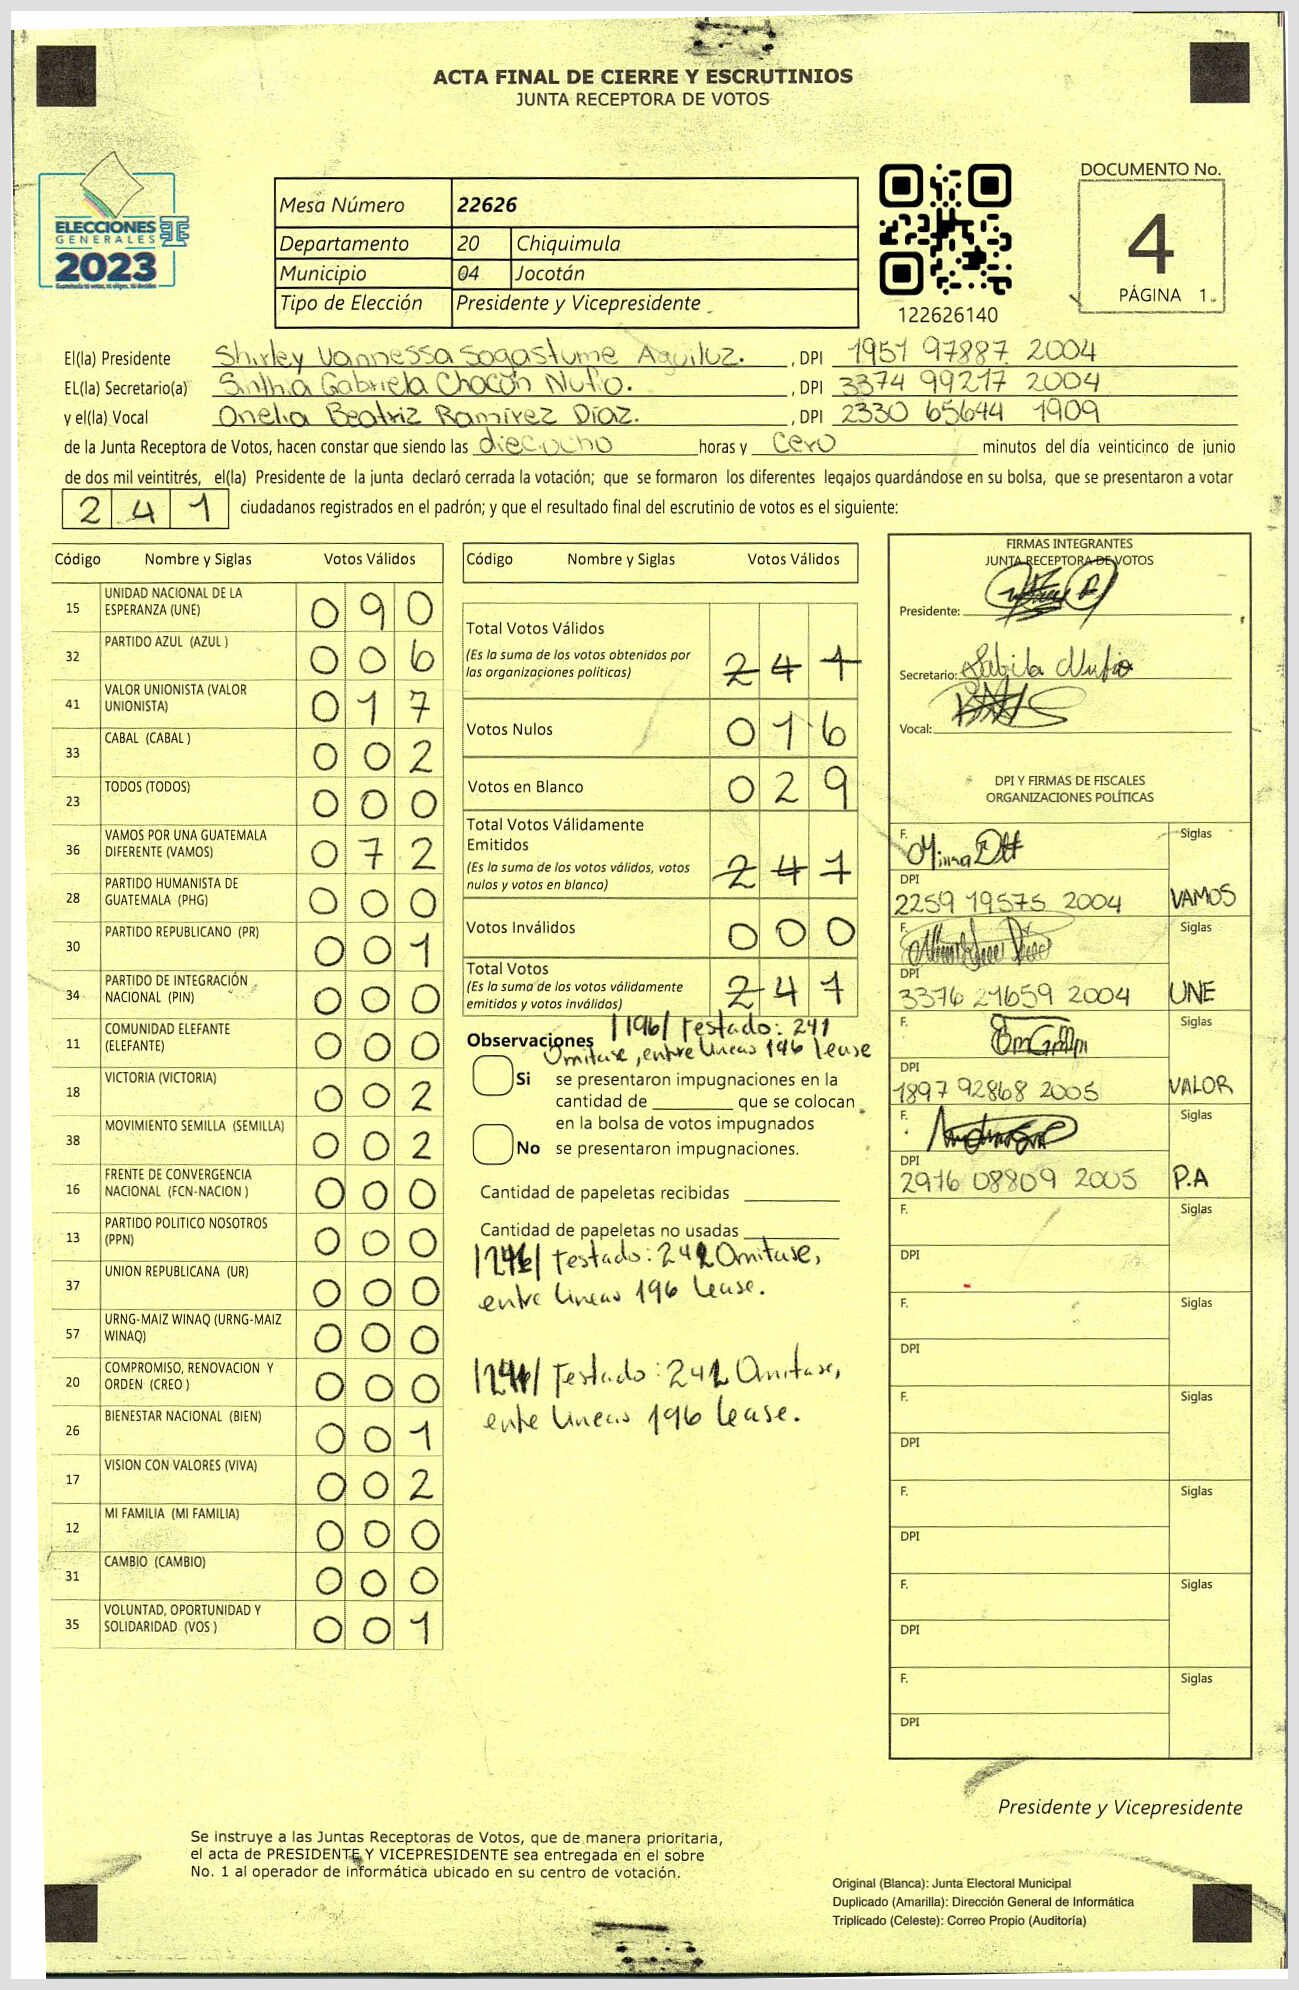 ACTA FINAL DE CIERRE Y ESCRUTINIOS
JUNTA RECEPTORA DE VOTOS
ELECCIONES
GENERALES
2023
Mesa Número 22626
Departamento 20 Chiquimula
Municipio 04 Jocotán
Tipo de Elección Presidente y Vicepresidente
122626140
DOCUMENTO No.
4
PÁGINA 1
El(la) Presidente Shirley Vannessa Sagastume Aguiluz. , DPI 1951 97887 2004
EL(la) Secretario(a) Sinthia Gabriela Chacón Nufio. , DPI 3374 99217 2004
y el(la) Vocal Onelia Beatriz Ramírez Díaz. , DPI 2330 65644 1909
de la Junta Receptora de Votos, hacen constar que siendo las dieciocho horas y cero minutos del día veinticinco de junio
de dos mil veintitrés, el(la) Presidente de la junta declaró cerrada la votación; que se formaron los diferentes legajos guardándose en su bolsa, que se presentaron a votar
2 4 1 ciudadanos registrados en el padrón; y que el resultado final del escrutinio de votos es el siguiente:
Código Nombre y Siglas Votos Válidos
15 UNIDAD NACIONAL DE LA
ESPERANZA (UNE) 0 9 0
32 PARTIDO AZUL (AZUL ) 0 0 6
41 VALOR UNIONISTA (VALOR
UNIONISTA) 0 1 7
33 CABAL (CABAL ) 0 0 2
23 TODOS (TODOS) 0 0 0
36 VAMOS POR UNA GUATEMALA
DIFERENTE (VAMOS) 0 7 2
28 PARTIDO HUMANISTA DE
GUATEMALA (PHG) 0 0 0
30 PARTIDO REPUBLICANO (PR) 0 0 1
34 PARTIDO DE INTEGRACIÓN
NACIONAL (PIN) 0 0 0
11 COMUNIDAD ELEFANTE
(ELEFANTE) 0 0 0
18 VICTORIA (VICTORIA) 0 0 2
38 MOVIMIENTO SEMILLA (SEMILLA) 0 0 2
16 FRENTE DE CONVERGENCIA
NACIONAL (FCN-NACION ) 0 0 0
13 PARTIDO POLITICO NOSOTROS
(PPN) 0 0 0
37 UNION REPUBLICANA (UR) 0 0 0
57 URNG-MAIZ WINAQ (URNG-MAIZ
WINAQ) 0 0 0
20 COMPROMISO, RENOVACION Y
ORDEN (CREO ) 0 0 0
26 BIENESTAR NACIONAL (BIEN) 0 0 1
17 VISION CON VALORES (VIVA) 0 0 2
12 MI FAMILIA (MI FAMILIA) 0 0 0
31 CAMBIO (CAMBIO) 0 0 0
35 VOLUNTAD, OPORTUNIDAD Y
SOLIDARIDAD (VOS ) 0 0 1
Código Nombre y Siglas Votos Válidos
Total Votos Válidos
(Es la suma de los votos obtenidos por
las organizaciones políticas) 2 4 1
Votos Nulos 0 1 6
Votos en Blanco 0 2 9
Total Votos Válidamente
Emitidos
(Es la suma de los votos válidos, votos
nulos y votos en blanco) 2 4 1
Votos Inválidos 0 0 0
Total Votos
(Es la suma de los votos válidamente
emitidos y votos inválidos) 2 4 1
Observaciones /196/ Testado: 241
Omitase, entre lineas 196 lease
Si se presentaron impugnaciones en la
cantidad de ________ que se colocan
en la bolsa de votos impugnados
No se presentaron impugnaciones.
Cantidad de papeletas recibidas
Cantidad de papeletas no usadas
Testado: 241 Omitase,
entre lineas 196 lease.
Testado: 241 Omitase,
ente lineas 196 lease.
FIRMAS INTEGRANTES
JUNTA RECEPTORA DE VOTOS
Presidente:
Secretario:
Vocal:
DPI Y FIRMAS DE FISCALES
ORGANIZACIONES POLÍTICAS
F. Siglas
DPI
2259 19575 2004 VAMOS
F. Siglas
DPI
3376 21659 2004 UNE
F. Siglas
DPI
1897 92868 2005 VALOR
F. Siglas
DPI
2976 08809 2005 P.A
F. Siglas
DPI
F. Siglas
DPI
F. Siglas
DPI
F. Siglas
DPI
F. Siglas
DPI
F. Siglas
DPI
Presidente y Vicepresidente
Se instruye a las Juntas Receptoras de Votos, que de manera prioritaria,
el acta de PRESIDENTE Y VICEPRESIDENTE sea entregada en el sobre
No. 1 al operador de informática ubicado en su centro de votación.
Original (Blanca): Junta Electoral Municipal
Duplicado (Amarilla): Dirección General de Informática
Triplicado (Celeste): Correo Propio (Auditoría)